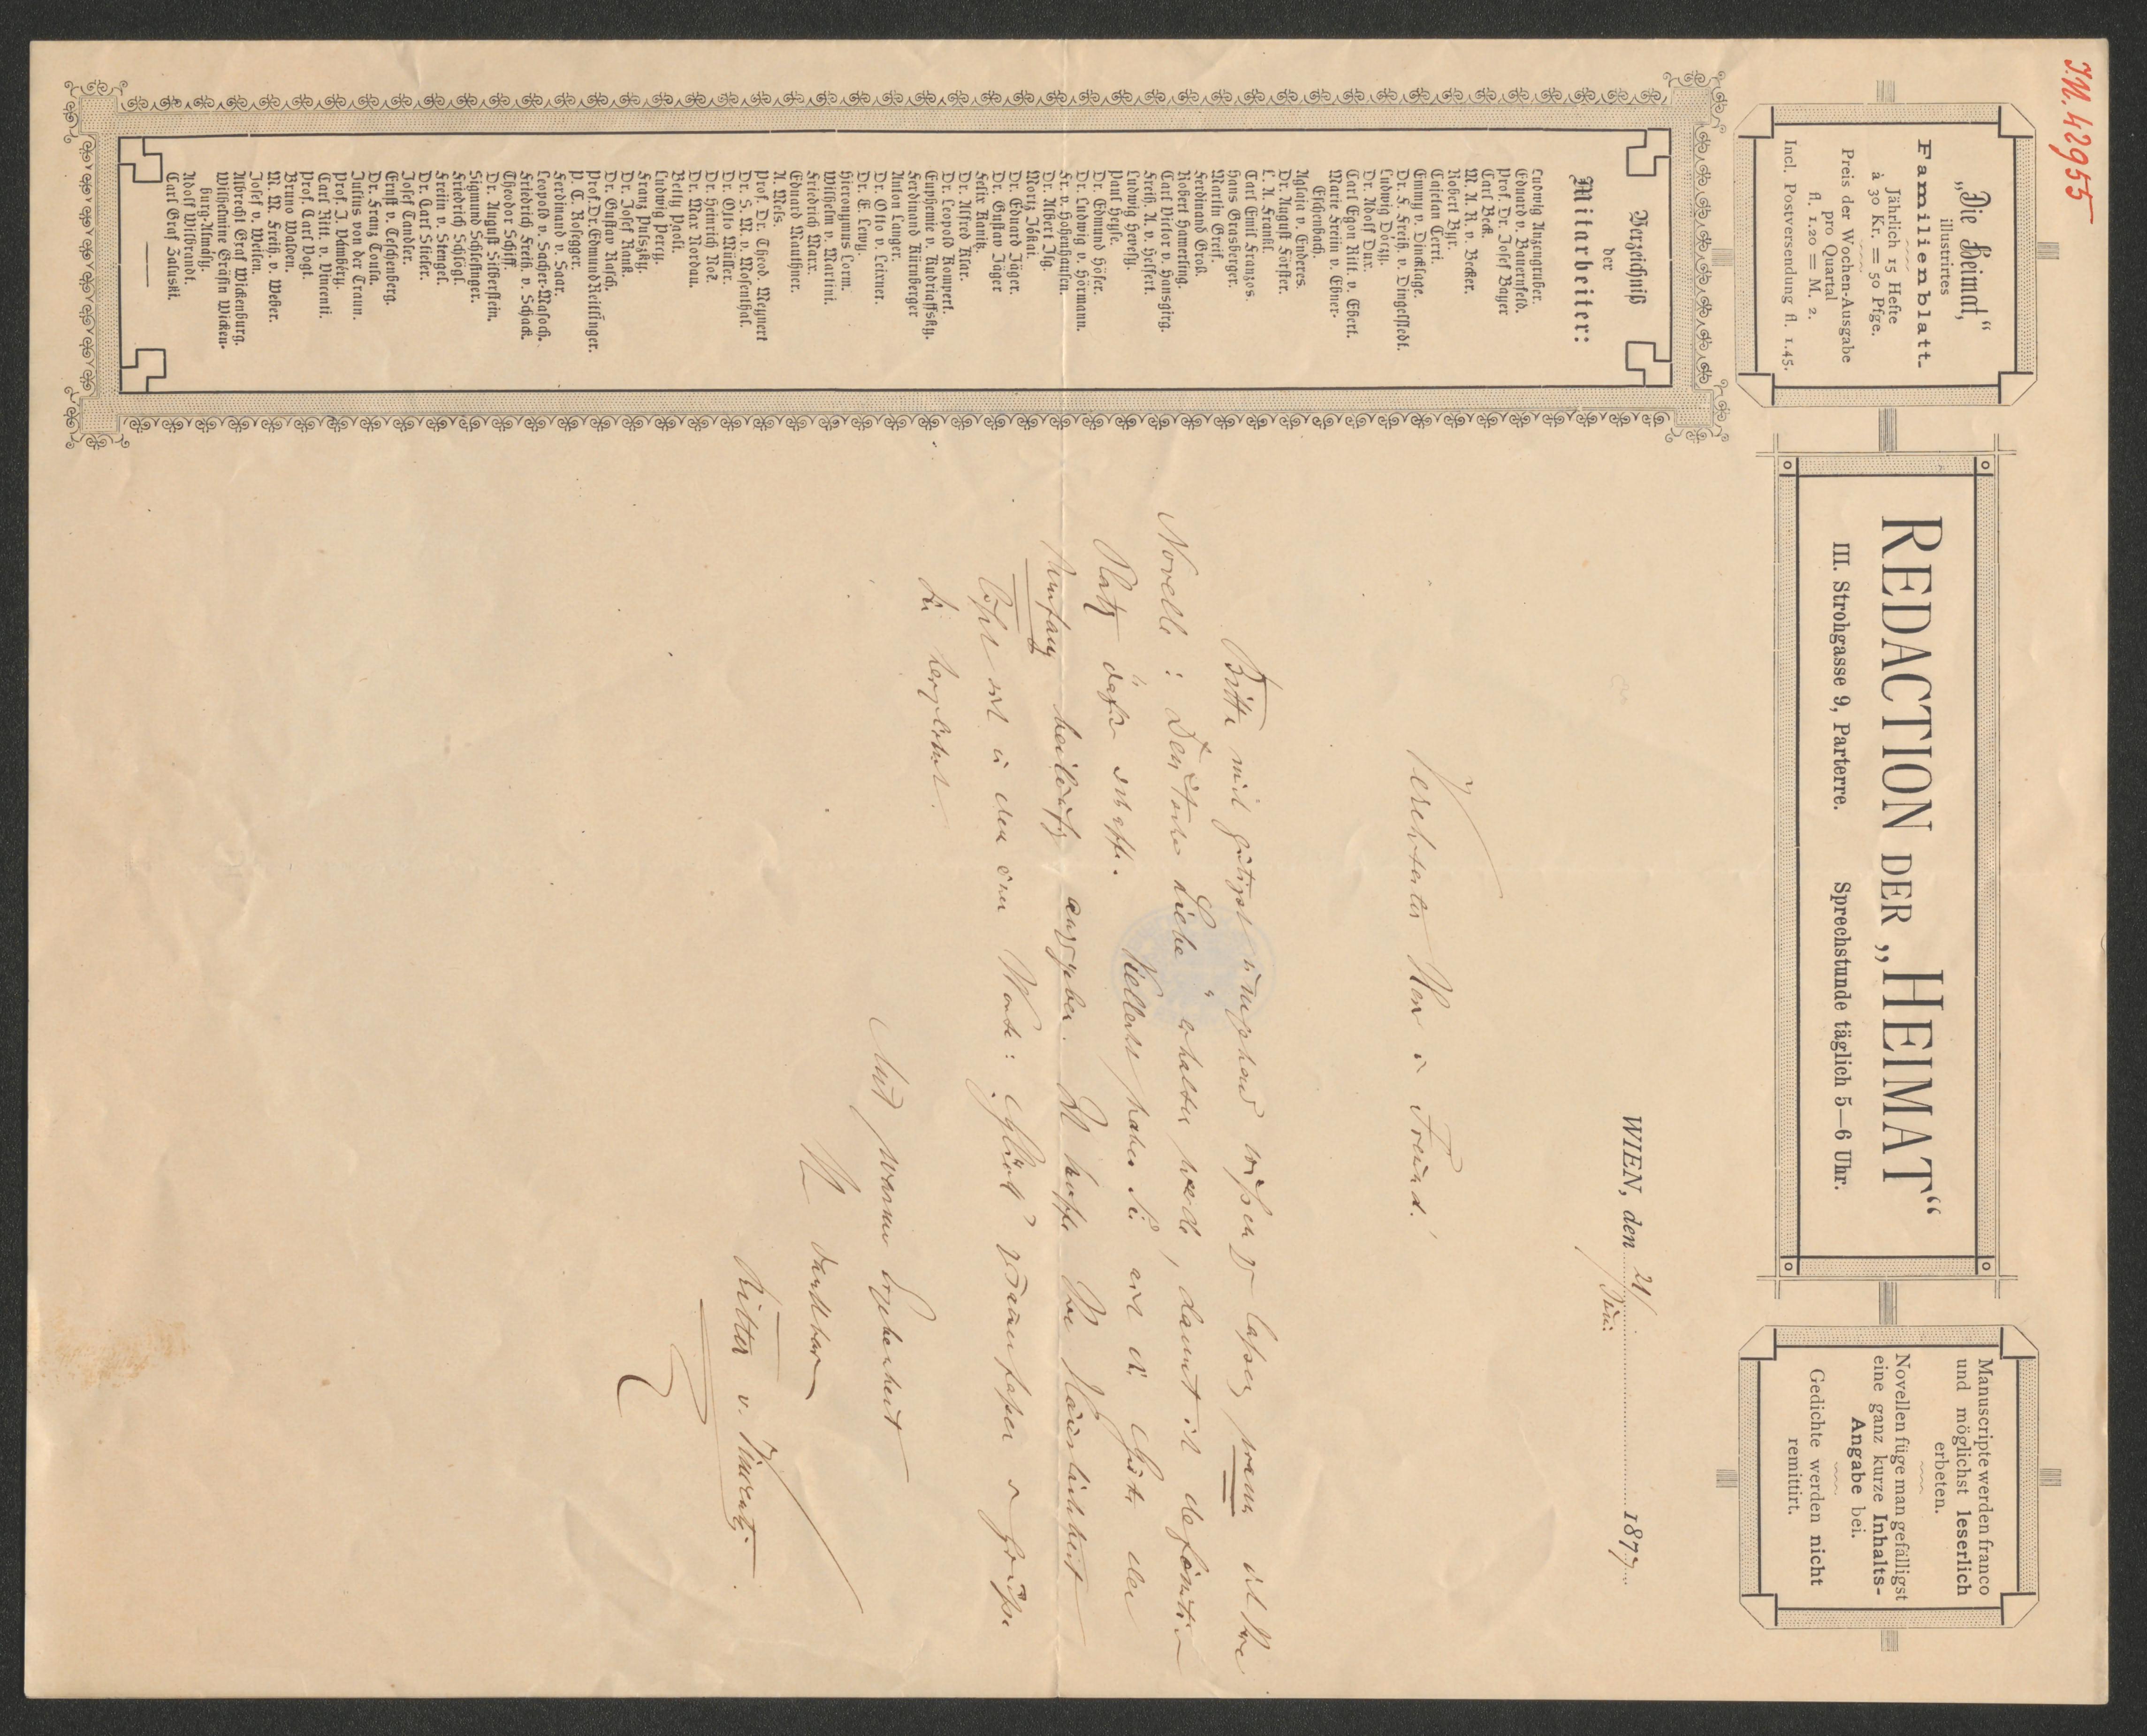 I.N. 42955
„Die Heimat,“
illustrirtes
Familienblatt.
Jährlich 15 Hefte
à 30 Kr. = 50 Pfge.
Preis der Wochen-Ausgabe
pro Quartal
fl. 1.20 = M. 2.
Incl. Postversendung fl. 1.45.
REDACTION DER „HEIMAT“
III. Strohgasse 9, Parterre. Sprechstunde täglich 5—6 Uhr.
Manuscripte werden franco
und möglichst leserlich
erbeten.
Novellen füge man gefälligst
eine ganz kurze Inhalts-
Angabe bei.
Gedichte werden nicht
remittirt.
WIEN, den 21/ 1877
Juni
Verzeichniß
der
Mitarbeiter:
Ludwig Anzengruber.
Eduard v. Bauernfeld.
Prof. Dr. Josef Bayer
Carl Beck.
M. A. R. v. Becker.
Robert Byr.
Cajetan Cerri.
Emmy v. Dincklage.
Dr. F. Freih. v. Dingelstedt.
Ludwig Dóczy.
Dr. Adolf Dux.
Carl Egon Ritt. v. Ebert.
Marie Freiin v. Ebner-
Eschenbach.
Aglaja v. Enderes.
Dr. August Förster.
L. A. Frankl.
Carl Emil Franzos.
Hans Grasberger.
Martin Greif.
Ferdinand Groß.
Robert Hamerling.
Carl Victor v. Hansgirg.
Freih. A. v. Helfert.
Ludwig Hevesy.
Paul Heyse.
Dr. Edmund Höfer.
Dr. Ludwig v. Hörmann.
Fr. v. Hohenhausen.
Dr. Albert Ilg.
Moriz Jókai.
Dr. Eduard Jäger.
Dr. Gustav Jäger
Felix Kanitz.
Dr. Alfred Klar.
Dr. Leopold Kompert.
Euphemie v. Kudriaffsky.
Ferdinand Kürnberger
Anton Langer.
Dr. Otto v. Leixner.
Dr. E. Lewy.
Hieronymus Lorm.
Wilhelm v. Martini.
Friedrich Marx.
Eduard Mauthner.
A. Mels.
Prof. Dr. Theod. Meynert
Dr. S. M. v. Mosenthal.
Dr. Otto Müller.
Dr. Heinrich Noë.
Dr. Max Nordau.
Betty Paoli.
Ludwig Percy.
Franz Pulszky.
Dr. Josef Rank.
Dr. Gustav Rasch.
Prof. Dr. Edmund Reitlinger.
P. C. Rosegger.
Ferdinand v. Saar.
Leopold v. Sacher-Masoch.
Friedrich Freih. v. Schack.
Theodor Schiff.
Dr. August Silberstein.
Sigmund Schlesinger.
Friedrich Schlögl.
Freiin v. Stengel.
Dr. Carl Stieler.
Josef Tandler.
Ernst v. Teschenberg.
Dr. Franz Toula.
Julius von der Traun.
Prof. J. Vámbéry.
Carl Ritt. v. Vincenti.
Prof. Carl Vogt.
Bruno Walden.
M. M. Freih. v. Weber.
Josef v. Weilen.
Albrecht Graf Wickenburg.
Wilhelmine Gräfin Wicken-
burg-Almásy.
Adolf Wilbrandt.
Carl Graf Zaluski.
Verehrtester Herr u Freund!
Bitte mich gütigst umgehend wissen zu lassen, wann ich Ihre
Novelle: „Deutsche Liebe“ erhalten werde, damit ich definitiv
Platz dafür schaffe. Vielleicht haben Sie auch die Güte den
Umfang beiläufig anzugeben. Ich hoffe Ihre Häuslichkeit
läßt sich in dem einen Worte: Glück zusammenfassen u grüße
Sie herzlichst.
Mit warmer Ergebenheit
Ihr dankbar
Ritter v. Vincenti